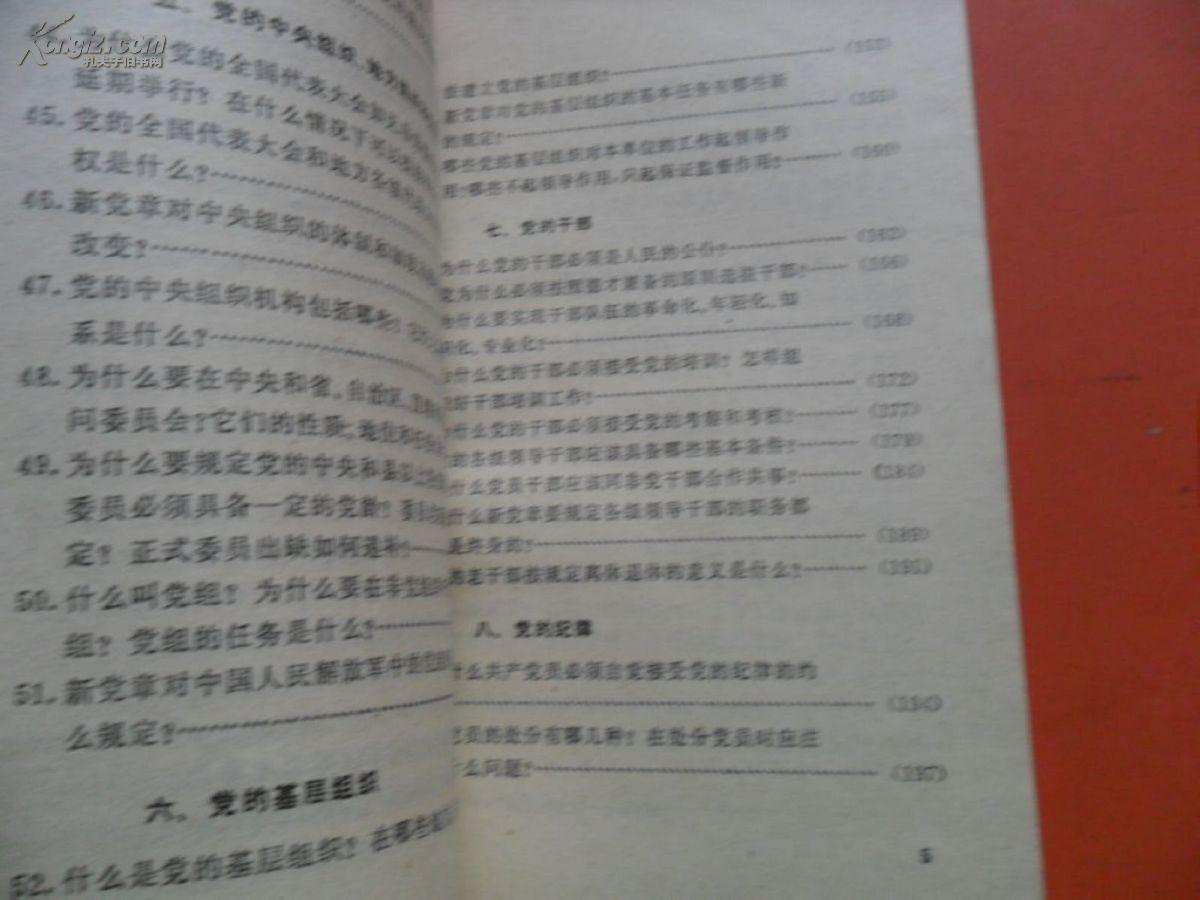 Kongfz.com
孔夫子旧书网
五、党的中央组织、地方
44. 为什么党的全国代表大会如无
延期举行？在什么情况下可以
45. 党的全国代表大会和地方各级代表
权是什么？
46. 新党章对中央组织的体制和
改变？
47. 党的中央组织机构包括哪些？
系是什么？
48. 为什么要在中央和省、自治区、直
问委员会？它们的性质、地位和
49. 为什么要规定党的中央和县以上
委员必须具备一定的党龄？委员
定？正式委员出缺如何递补？
50. 什么叫党组？为什么要在非党
组？党组的任务是什么？
51. 新党章对中国人民解放军中的党
么规定？
六、党的基层组织
52. 什么是党的基层组织？在哪些
建立党的基层组织？
新党章对党的基层组织的基本任务有哪些新
的规定？ (155)
哪些党的基层组织对本单位的工作起领导作
用？哪些不起领导作用，只起保证监督作用？ (160)
七、党的干部
为什么党的干部必须是人民的公仆？
党为什么必须按照德才兼备的原则选拔干部？
为什么要实现干部队伍的革命化、年轻化、知
识化、专业化？ (168)
为什么党的干部必须接受党的培训？怎样组
织好干部培训工作？ (172)
为什么党的干部必须接受党的考察和考核？ (177)
的各级领导干部应该具备哪些基本条件？ (179)
什么党员干部应该同非党干部合作共事？ (184)
什么新党章要规定各级领导干部的职务都
是终身的？ (189)
的老干部按规定离休退休的意义是什么？ (191)
八、党的纪律
什么共产党员必须自觉接受党的纪律的约
(194)
党员的处分有哪几种？在处分党员时应注
什么问题？ (197)
5